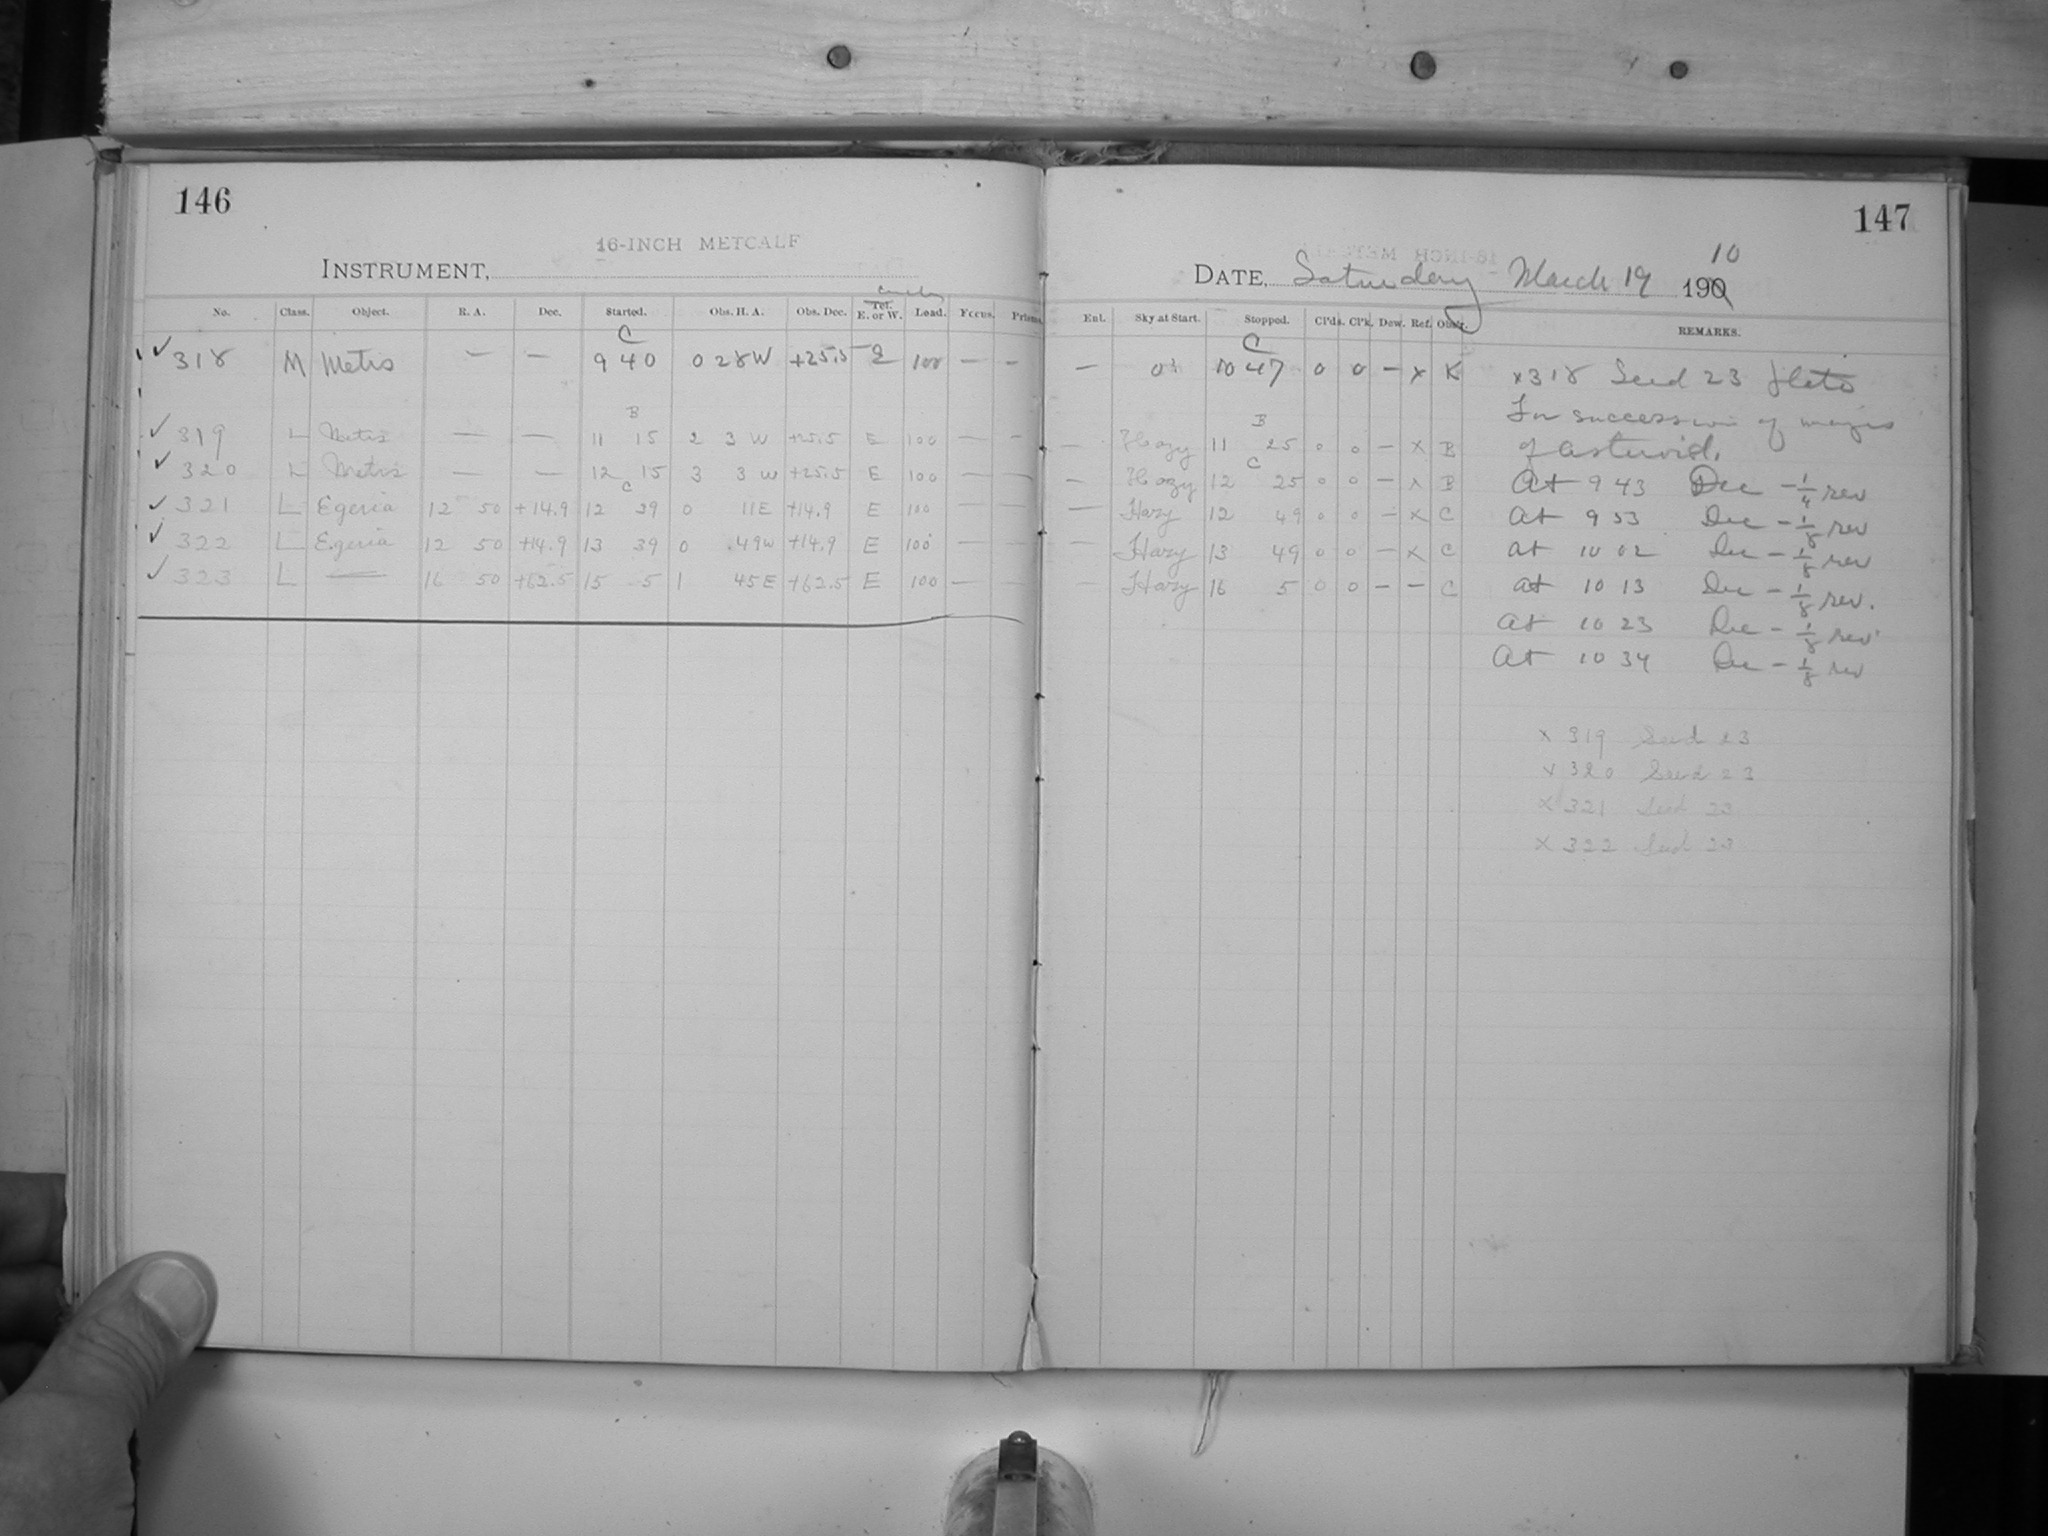 146
16-INCH METCALF
INSTRUMENT,
No. Class. Object. R. A. Dec. Started. Obs. H. A. Obs. Dec. Tel. E. or W. Load. Focus. Prisms.
C
✓ 318 M Metis — — 9 40 0 28 W +25.5 E 100 — —
B
✓ 319 L Metis — — 11 15 2 3 W +25.5 E 100 — —
✓ 320 L Metis — — 12 15 3 3 W +25.5 E 100 — —
C
✓ 321 L Egeria 12 50 +14.9 12 39 0 11 E +14.9 E 100 — —
✓ 322 L Egeria 12 50 +14.9 13 39 0 49 W +14.9 E 100 — —
✓ 323 L — 16 50 +62.5 15 5 1 45 E +62.5 E 100 — —
147
DATE, Saturday March 19 190 10
Enl. Sky at Start. Stopped. Cl'ds. Cl'k. Dew. Ref. Obstr. REMARKS.
C
— 10 47 0 0 — x K
B
— Hazy 11 25 0 0 — x B
C
— Hazy 12 25 0 0 — x B
— Hazy 12 49 0 0 — x C
— Hazy 13 49 0 0 — x C
— Hazy 16 5 0 0 — — C
x 318 Seed 23 Plate
For succession of images
of asteroid.
At 9 43 Dec - 1/4 rev
At 9 53 Dec - 1/8 rev
At 10 02 Dec - 1/8 rev
At 10 13 Dec - 1/8 rev.
At 10 23 Dec - 1/8 rev
At 10 34 Dec - 1/8 rev
x 319 Seed 23
x 320 Seed 23
x 321 Seed 23
x 322 Seed 23